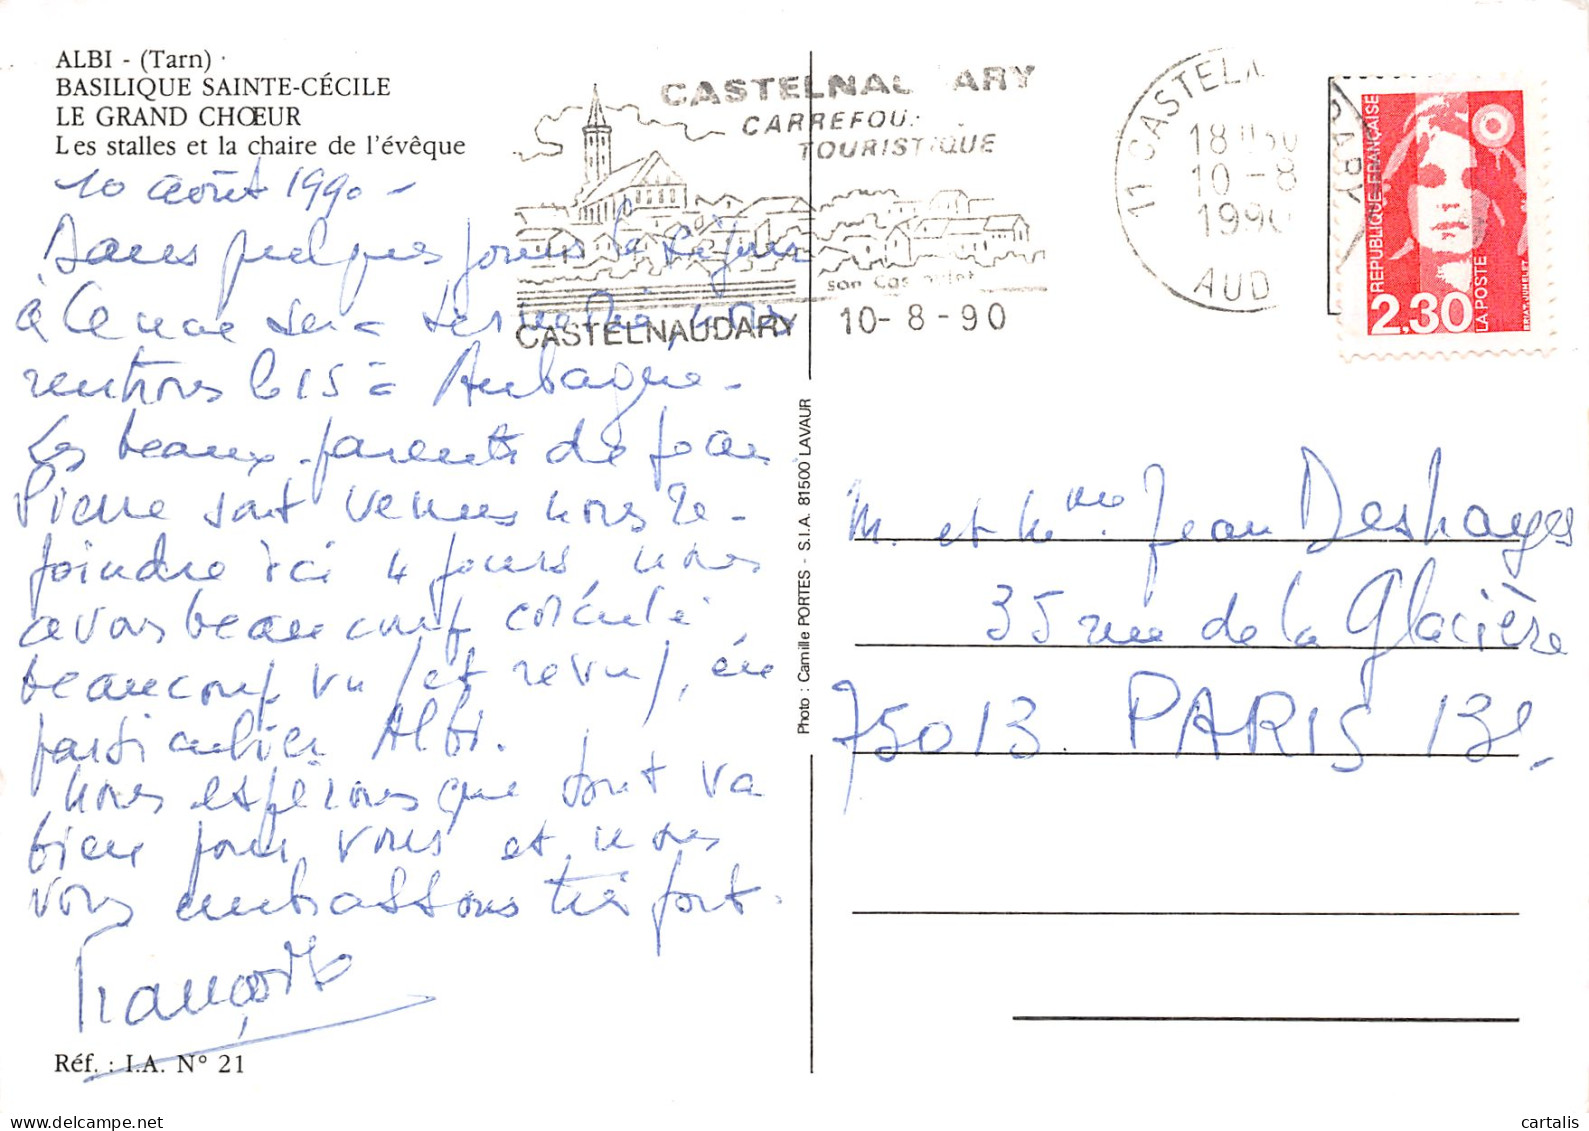 ALBI - (Tarn)
BASILIQUE SAINTE-CÉCILE
LE GRAND CHŒUR
Les stalles et la chaire de l'évêque
10 août 1990 -
Dans quelques jours le séjour
à Cenne sera terminé, nous
rentrons le 15 à Aubagne -
Les beaux-parents de Jean
Pierre sont venus nous re-
joindre ici 4 jours, nous
avons beaucoup circulé,
beaucoup vu (et revu), en
particulier Albi.
Nous espérons que tout va
bien pour vous et nous
vous embrassons très fort.
Réf. : I.A. N° 21
CASTELNAU ARY
CARREFOU
TOURISTIQUE
son Cassoulet
CASTELNAUDARY 10-8-90
11 CASTEL
DARY
18H30
10-8
1990
AUD
RÉPUBLIQUE FRANÇAISE
2,30
LA POSTE
Photo : Camille PORTES - S.I.A. 81500 LAVAUR
M. et Mme. Jean Deshayes
35 rue de la Glacière
75013 PARIS 13e.
cartalis
delcampe.net